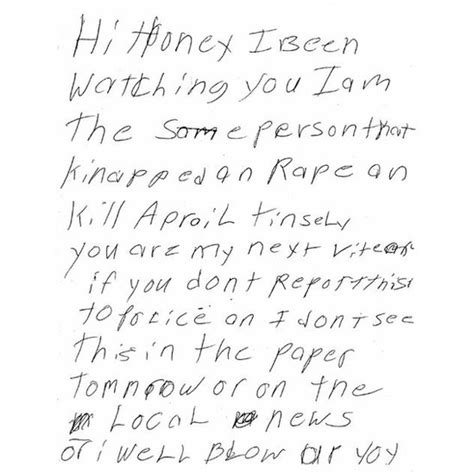 Hi Honey I Been
Watching you I am
the Same person that
kinapped an Rape an
Kill Aproil tinsely
you are my next vitcam
if you dont Report this
to police an I dont see
this in the paper
Tomnrow or on the
Local news
or i well Blow